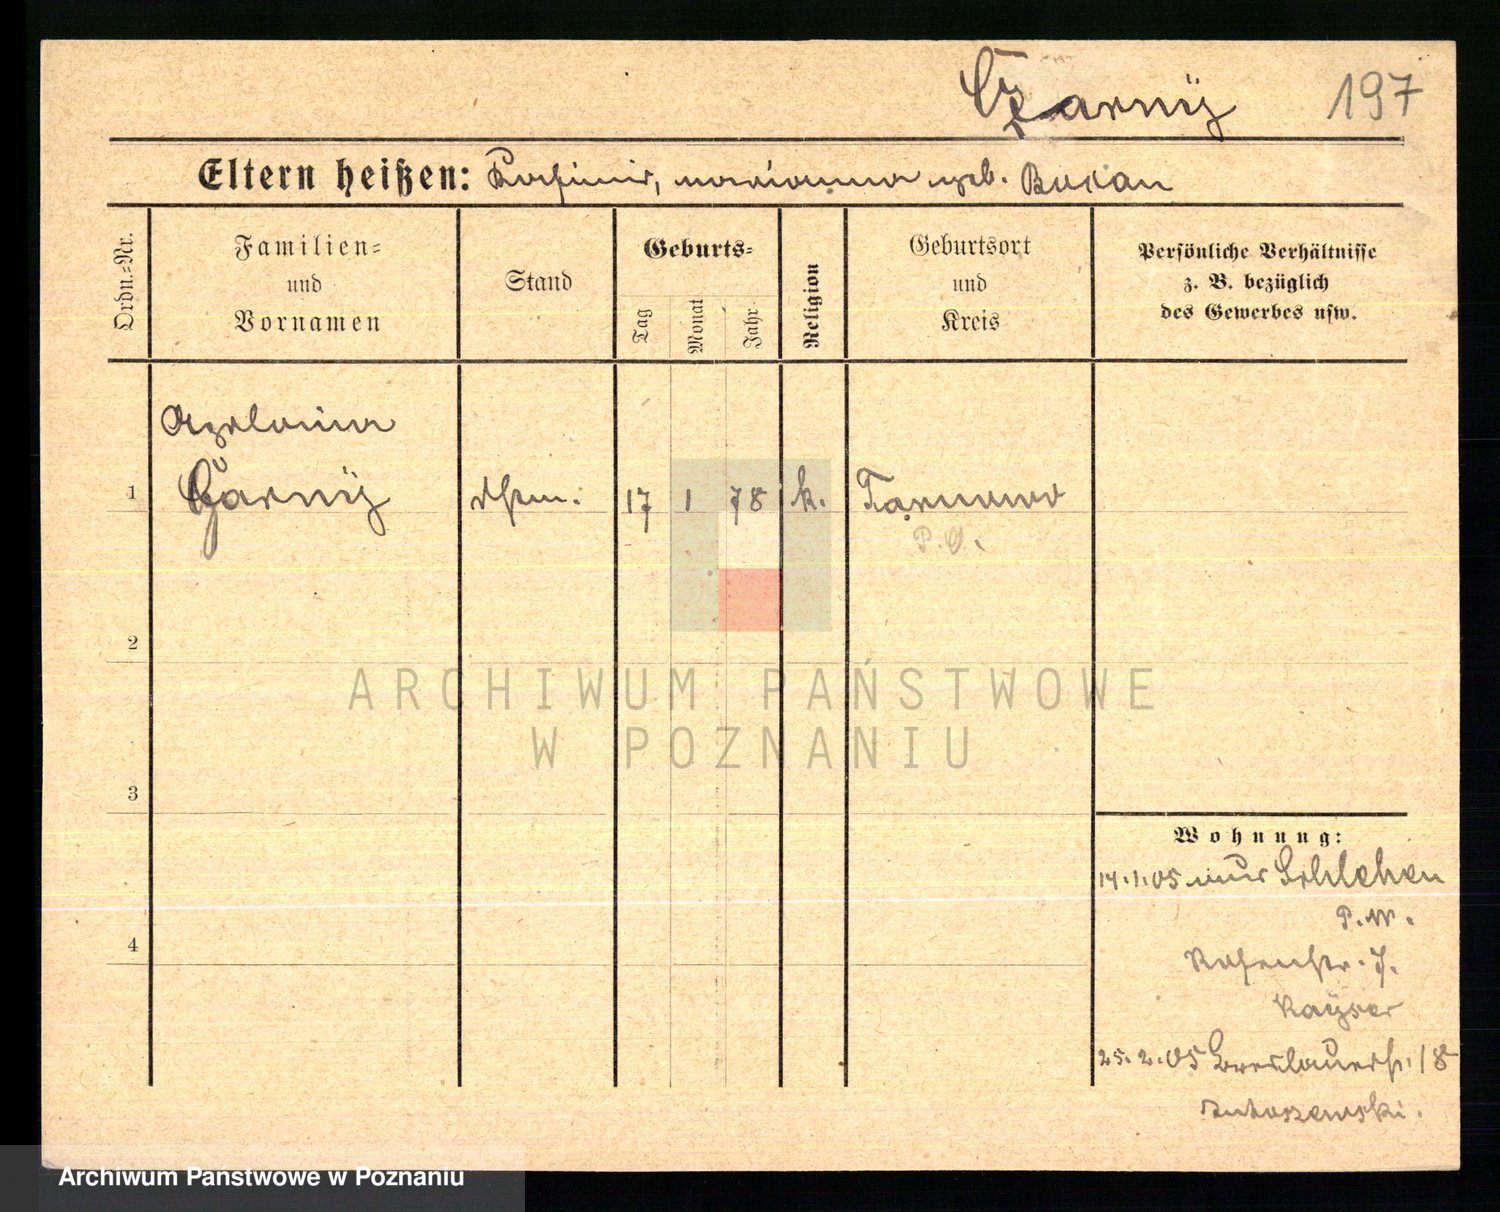 Czarny 197
Eltern heißen: Kasimir, Marianna geb. Bukan
Ordn.=Nr.
Familien=
und
Vornamen
Stand
Geburts=
Tag
Monat
Jahr
Religion
Geburtsort
und
Kreis
Persönliche Verhältnisse
z. B. bezüglich
des Gewerbes usw.
Apolonia
1 Czarny 17 1 78 k. Tarnowo
P. O.
2
ARCHIWUM PAŃSTWOWE
W POZNANIU
3
Wohnung:
14.1.05 aus Schlehen
P. W.
4
Rosenstr. 7.
Kayser
25.2.05 Breslauerstr. 18
Archiwum Państwowe w Poznaniu